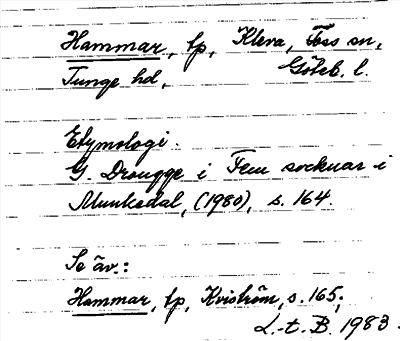 Hammar, tp, Kleva, Foss sn,
Tunge hd, Göteb. l.
Etymologi.
G. Drougge i Fem socknar i
Munkedal, (1980), s. 164.
Se äv.:
Hammar, tp, Kviström, s. 165.
L.-t. B. 1983.